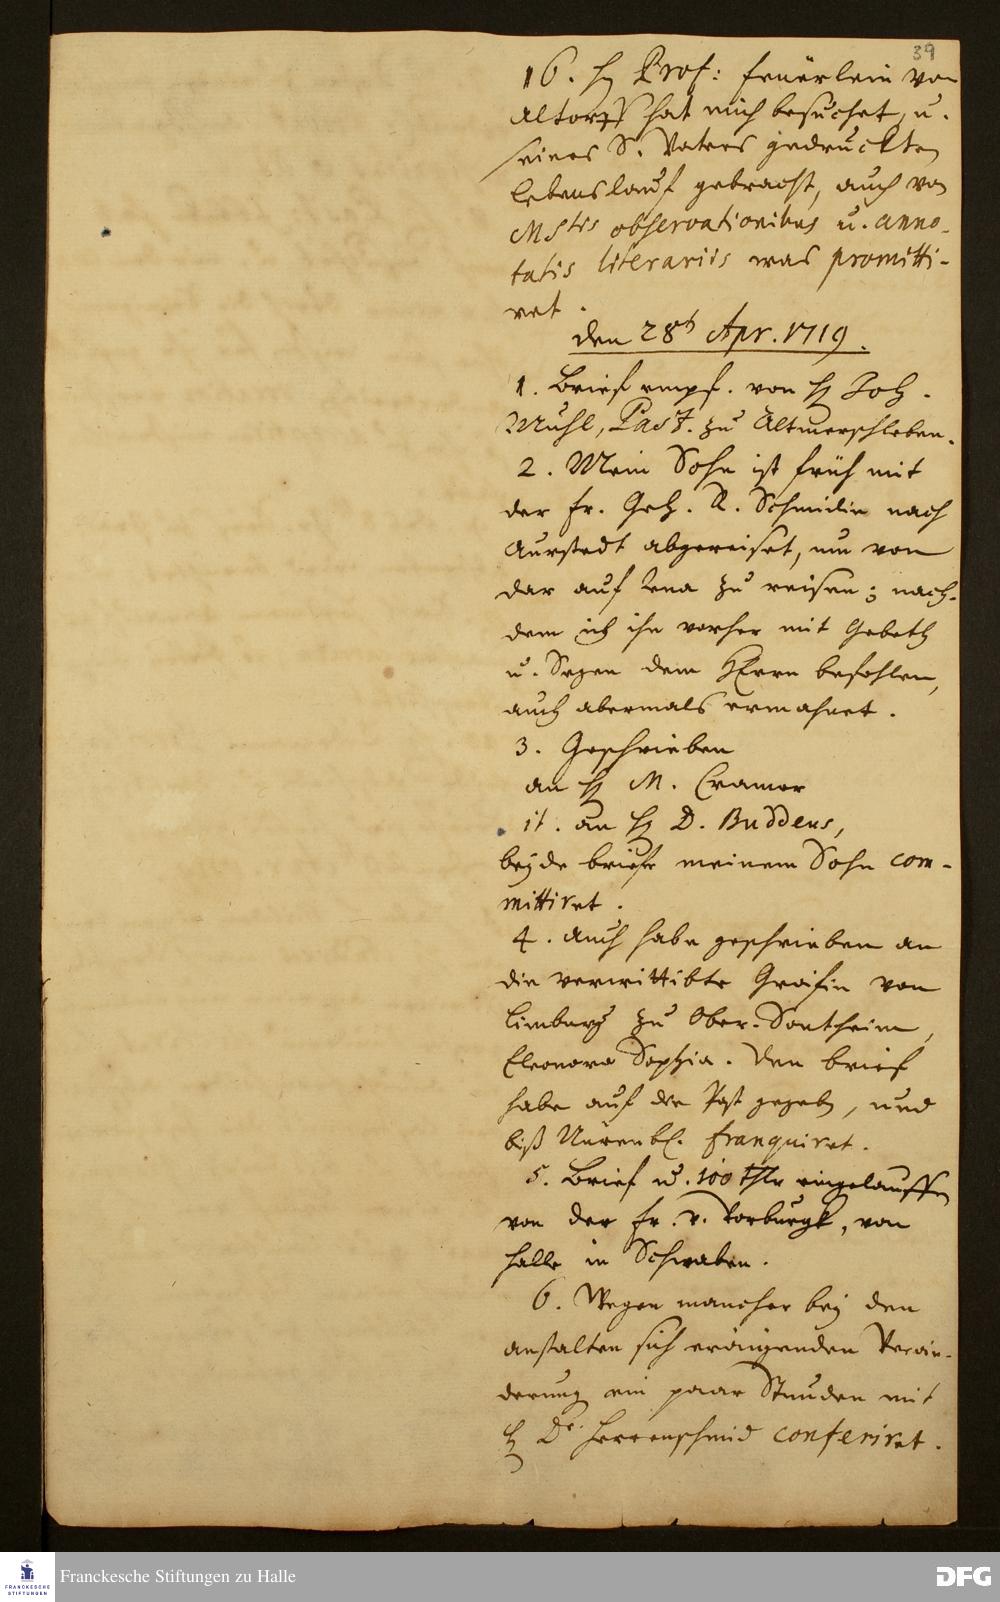 39
16. H. Prof: Feuerlein von
Altorff hat mich besuchet, u.
seines S. Vaters gedruckten
Lebenslauf gebracht, auch von
MStis observationibus u. anno-
tatis literariis was promitti-
ret.
den 28t Apr. 1719.
1. Brief empf. von H. Joh.
Mühl, Past. zu Altmerschleben.
2. Mein Sohn ist früh mit
der Fr. Geh. R. Schmidin nach
Aurstedt abgereiset, um von
dar auf Jena zu reisen; nach-
dem ich ihn vorher mit Gebeth
u. Segen dem HErrn befohlen,
auch abermals ermahnet.
3. Geschrieben
an H. M. Cramer
it. an H. D. Buddeus,
beyde briefe meinem Sohn com-
mittiret.
4. Auch habe geschrieben an
die verwittibte Gräfin von
Limburg zu Ober-Sontheim,
Eleonora Sophia. Den brief
habe auf die Post gegeben, und
biß Nürenb. franquiret.
5. Brief u. 100 thlr eingelauffen
von der Fr. v. Vorburgk, von
Halle in Schwaben.
6. Wegen mancher bey den
Anstalten sich eräugenden Verän-
derung ein paar Stunden mit
H. Dr. Herrnschmid conferiret.
FRANCKESCHE
STIFTUNGEN
Franckesche Stiftungen zu Halle
DFG